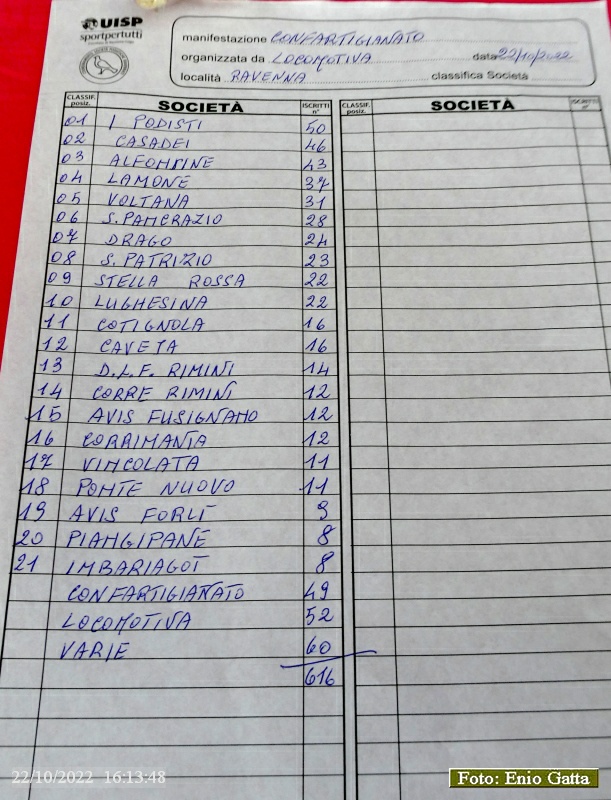 UISP
sportpertutti
manifestazione CONFARTIGIANATO
organizzata da LOCOMOTIVA data 22/10/2022
località RAVENNA classifica Società
CLASSIF. posiz. SOCIETÀ ISCRITTI n° CLASSIF. posiz. SOCIETÀ ISCRITTI n°
01 I PODISTI 50
02 CASADEI 46
03 ALFONSINE 43
04 LAMONE 37
05 VOLTANA 31
06 S. PANCRAZIO 28
07 DRAGO 24
08 S. PATRIZIO 23
09 STELLA ROSSA 22
10 LUGHESINA 22
11 COTIGNOLA 16
12 CAVEJA 16
13 D.L.F. RIMINI 14
14 CORRE RIMINI 12
15 AVIS FUSIGNANO 12
16 CORRIMANIA 12
17 VINCOLATA 11
18 PONTE NUOVO 11
19 AVIS FORLÌ 9
20 PIANGIPANE 8
21 IMBARIAGOT 8
CONFARTIGIANATO 49
LOCOMOTIVA 52
VARIE 60
616
22/10/2022 16:13:48
Foto: Enio Gatta